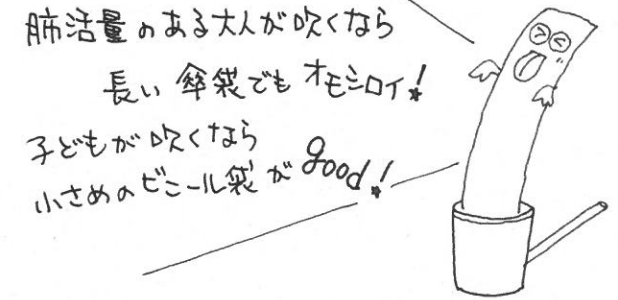 肺活量のある大人が吹くなら
長い傘袋でもオモシロイ!
子どもが吹くなら
小さめのビニール袋がgood!